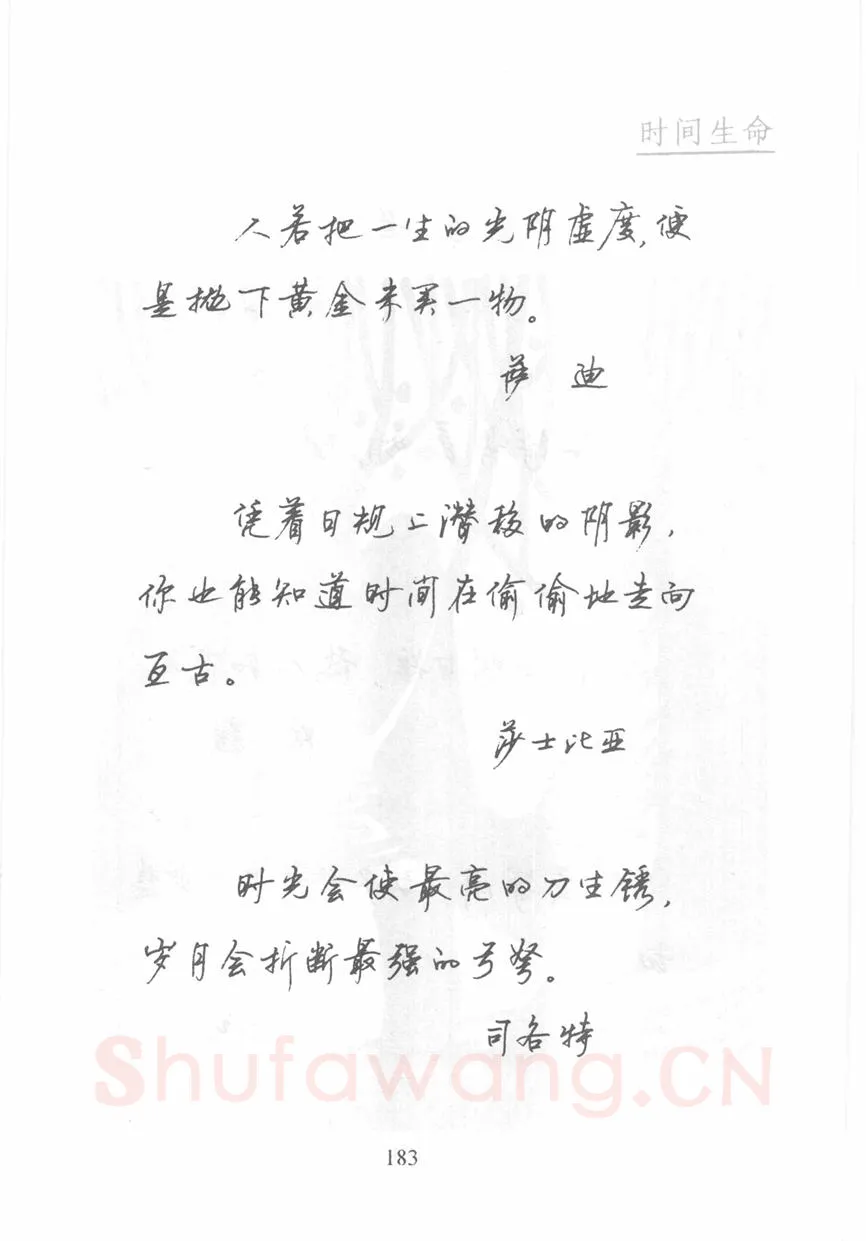 时间生命
人若把一生的光阴虚度,便
是抛下黄金未买一物。
萨 迪
凭着日规上潜移的阴影,
你也能知道时间在偷偷地走向
亘古。
莎士比亚
时光会使最亮的刀生锈,
岁月会折断最强的弓弩。
司各特
Shufawang.CN
183